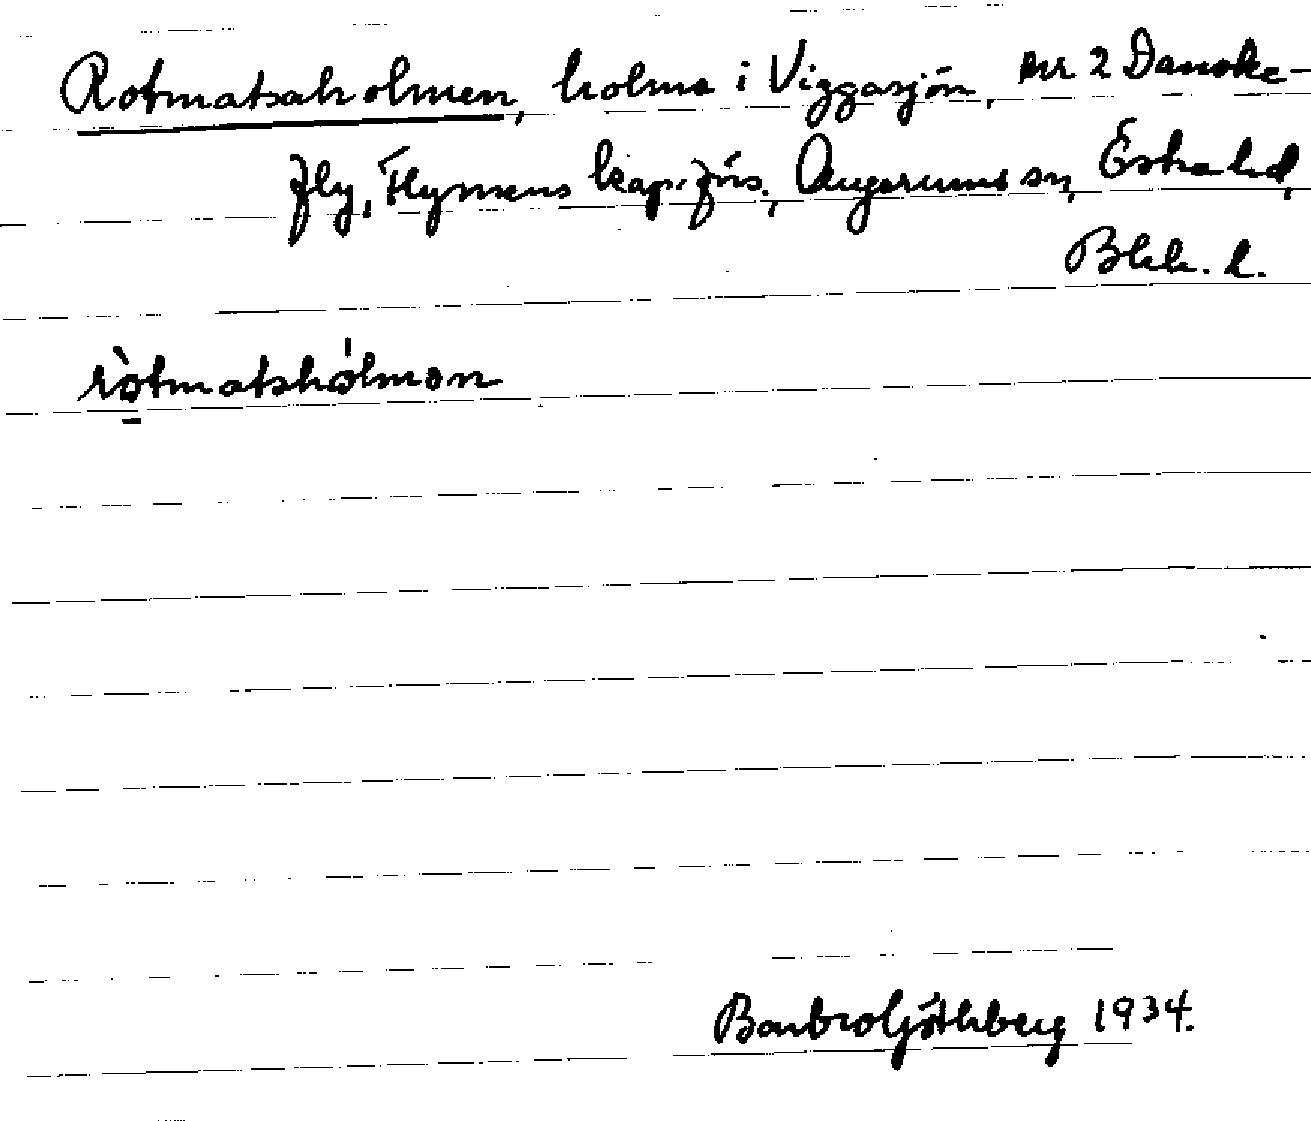 Rotmatsaholmen, holme i Viggasjön, nr 2 Danske-
fly, Flymens kap.förs., Augerums sn, Östra hd,
Blek. l.
ròtmatshólmən
Barbro Göthberg 1934.